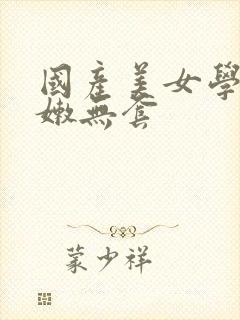 國產美女學
嫩無套
蒙少祥